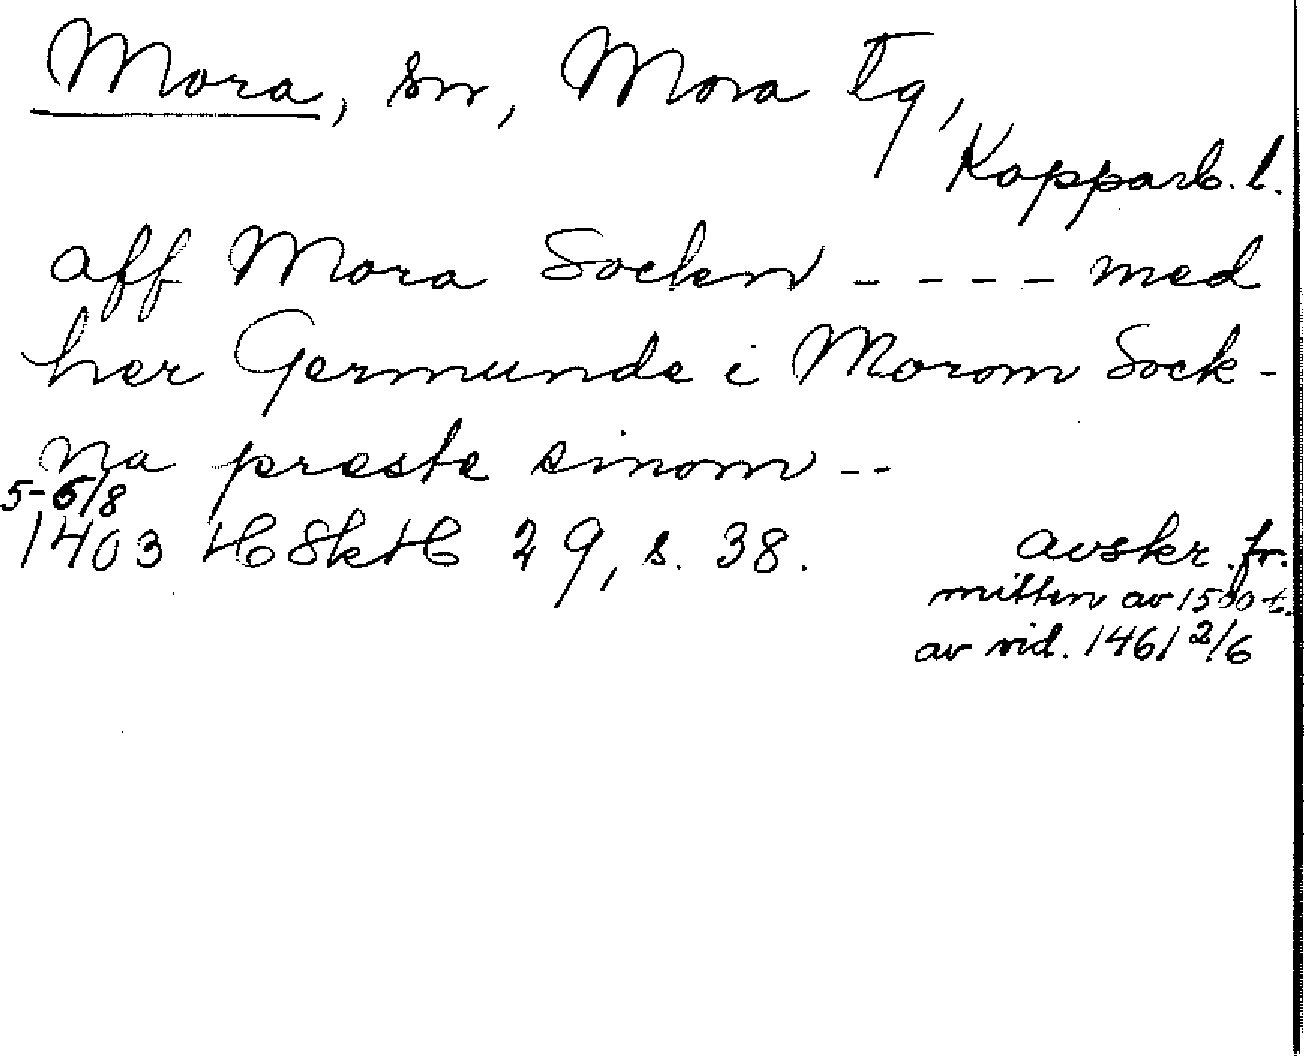 Mora, sn, Mora tg,
Kopparb. l.
aff Mora Sockn - - - - med
her Germunde i Morom Sock-
na præste sinom - -
5-6/8
1403 HSH 29, s. 38.
avskr. fr.
mitten av 1500-t.
av vid. 1461 2/6